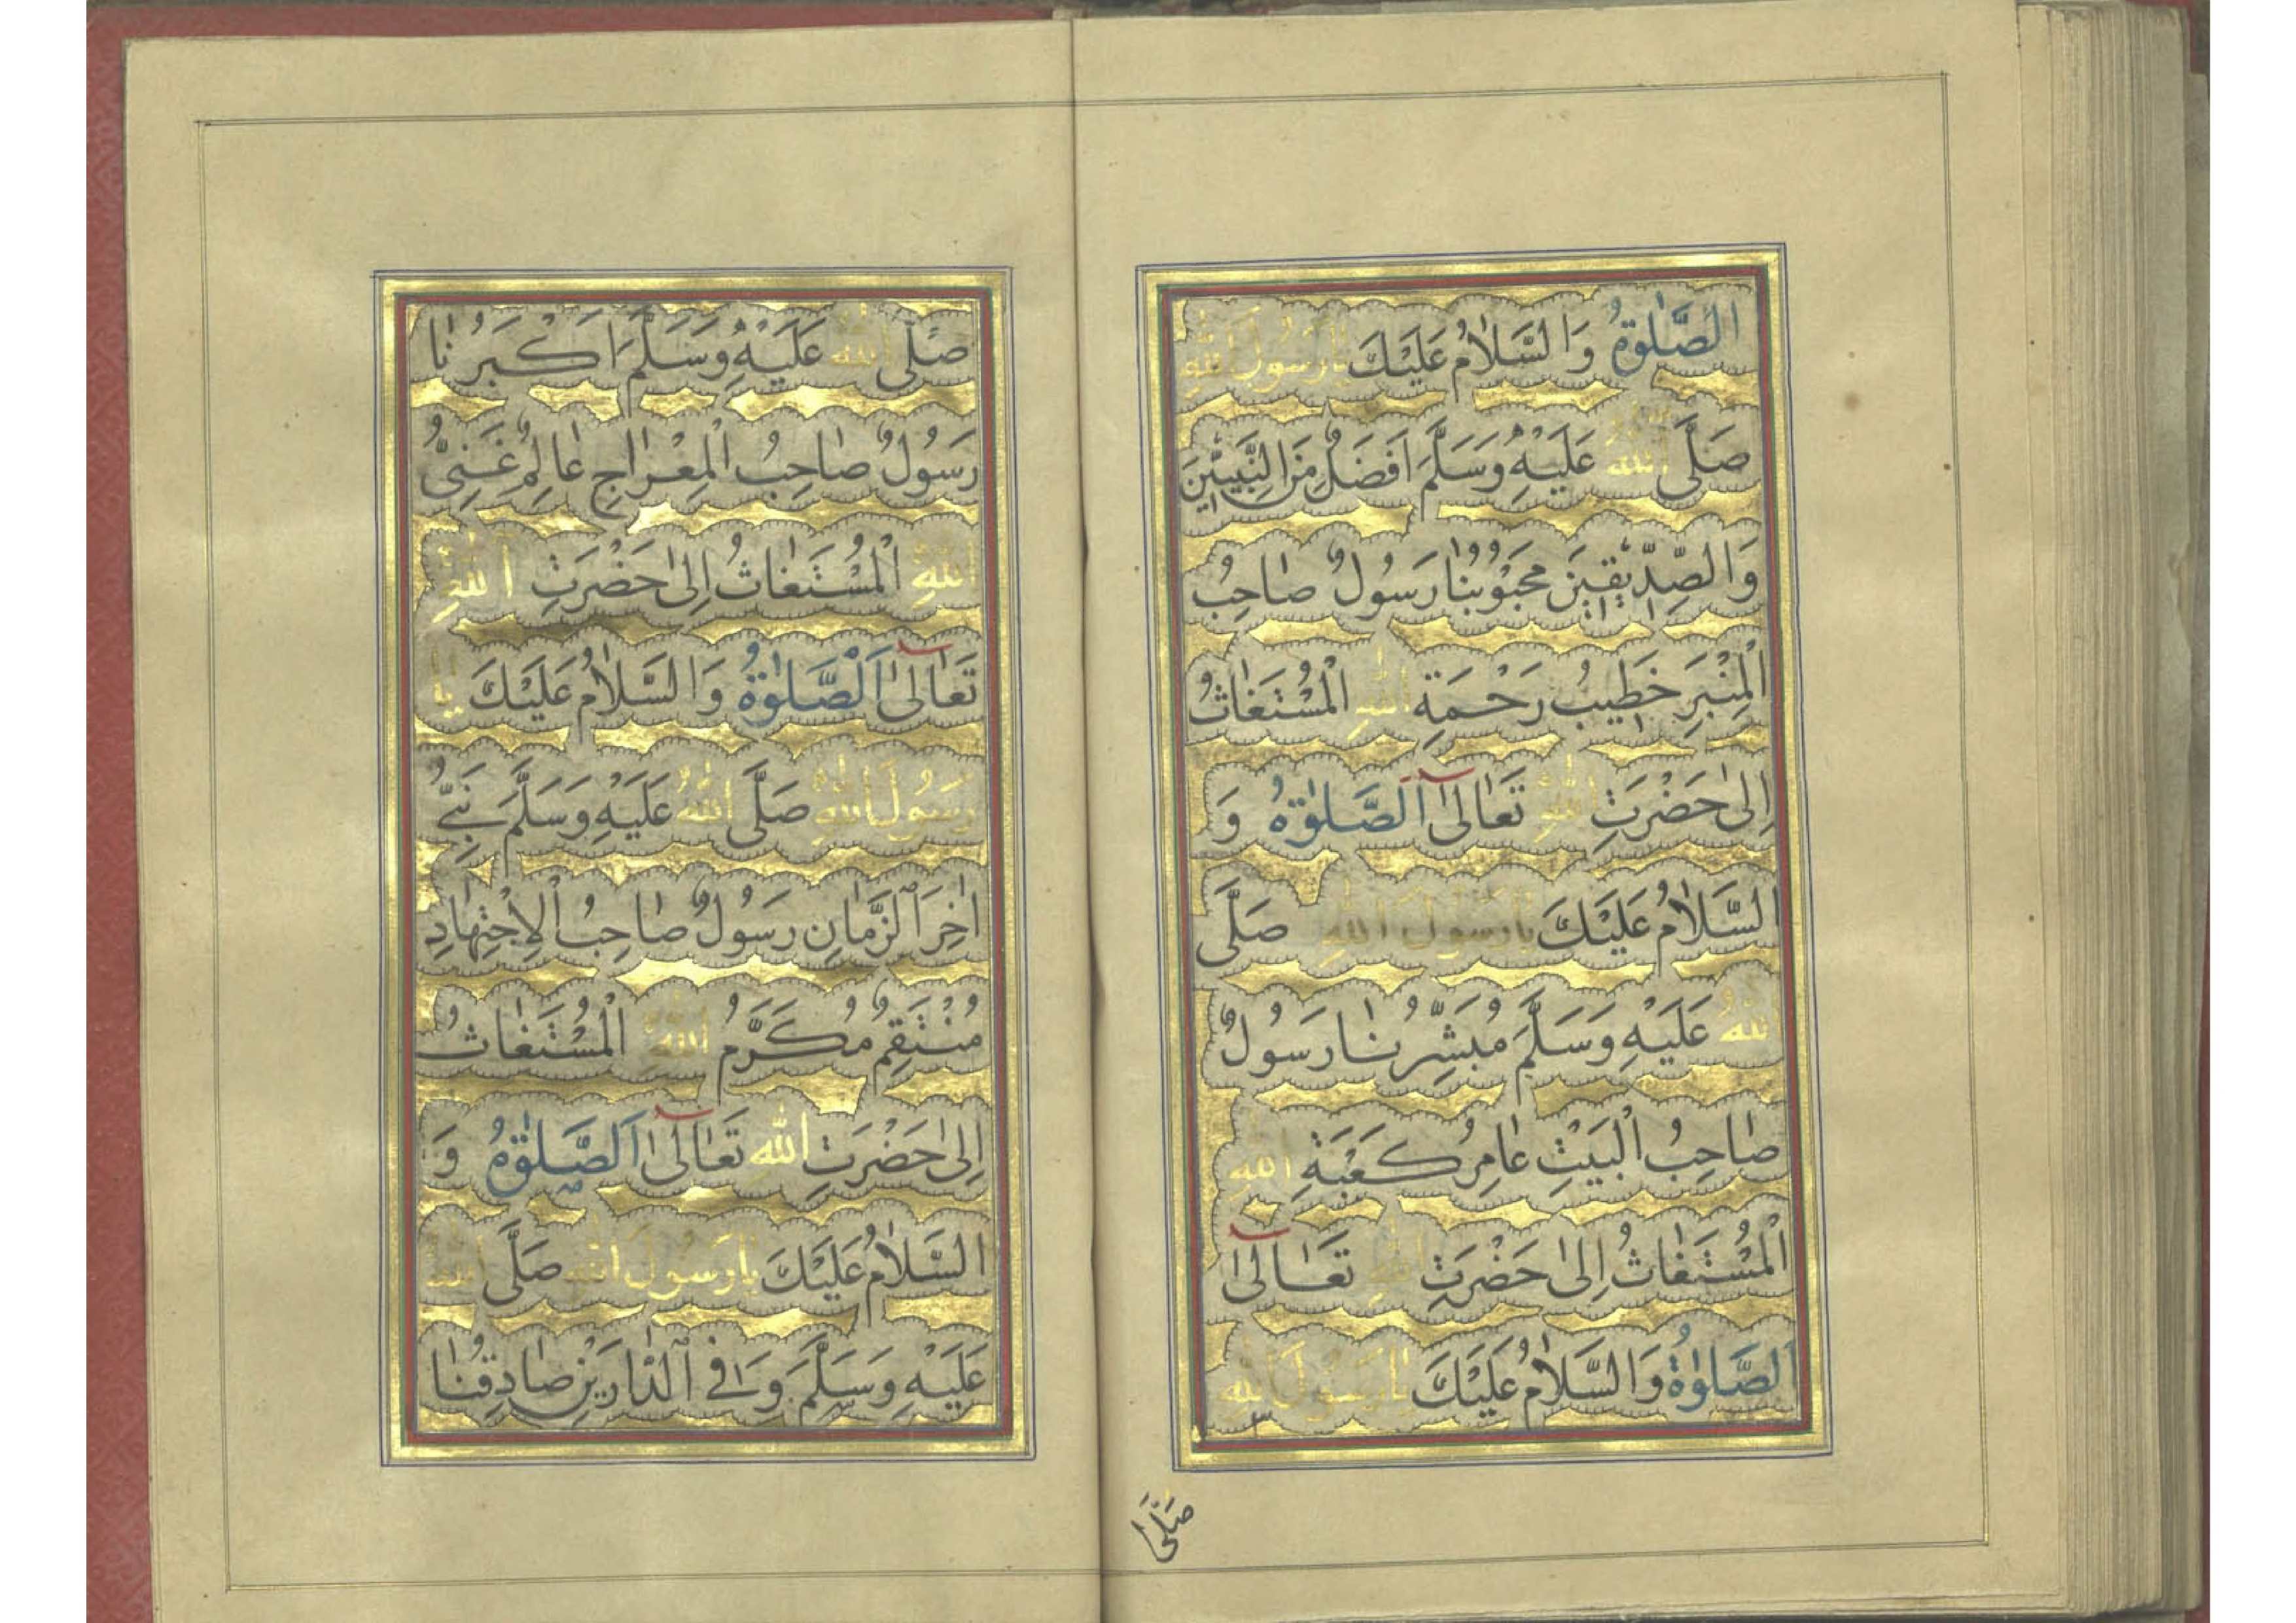 الصَّلٰوةُ وَالسَّلَامُ عَلَيْكَ يَارَسُولَ اللهِ
صَلَّى اللهُ عَلَيْهِ وَسَلَّمَ اَفْضَلُ مِنَ النَّبِيّٖنَ
وَالصِّدِّيْقِيْنَ مَحْبُوْبُنَا رَسُوْلٌ صَاحِبُ
الْمِنْبَرِ خَطِيْبُ رَحْمَةِ اللهِ الْمُسْتَغَاثُ
اِلٰى حَضْرَتِ اللهِ تَعَالٰى اَلصَّلٰوةُ وَ
السَّلَامُ عَلَيْكَ يَارَسُوْلَ اللهِ صَلَّى
اللهُ عَلَيْهِ وَسَلَّمَ مُبَشِّرُنَا رَسُوْلٌ
صَاحِبُ الْبَيْتِ عَامِرُ كَعْبَةِ اللهِ
اَلْمُسْتَغَاثُ اِلٰى حَضْرَتِ اللهِ تَعَالٰى
اَلصَّلٰوةُ وَالسَّلَامُ عَلَيْكَ يَارَسُوْلَ اللهِ
صَلَّى
صَلَّى اللهُ عَلَيْهِ وَسَلَّمَ اَكْبَرُنَا
رَسُوْلٌ صَاحِبُ الْمِعْرَاجِ عَالِمٌ غَنِىُّ
اللهِ اَلْمُسْتَغَاثُ اِلٰى حَضْرَتِ اللهِ
تَعَالٰى اَلصَّلٰوةُ وَالسَّلَامُ عَلَيْكَ يَا
رَسُوْلَ اللهِ صَلَّى اللهُ عَلَيْهِ وَسَلَّمَ نَبِىُّ
اٰخِرَ الزَّمَانِ رَسُوْلٌ صَاحِبُ الْاِجْتِهَادِ
مُنْتَقِمٌ مُكَرَّمُ اللهِ الْمُسْتَغَاثُ
اِلٰى حَضْرَتِ اللهِ تَعَالٰى اَلصَّلٰوةُ وَ
السَّلَامُ عَلَيْكَ يَارَسُوْلَ اللهِ صَلَّى اللهُ
عَلَيْهِ وَسَلَّمَ وَافِى الدَّارَيْنِ صَادِقُنَا